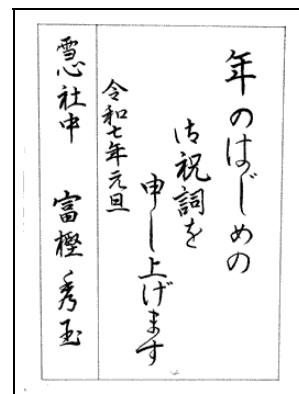 年のはじめの
御祝詞を
申し上げます
令和七年元旦
雪心社中 富樫秀玉